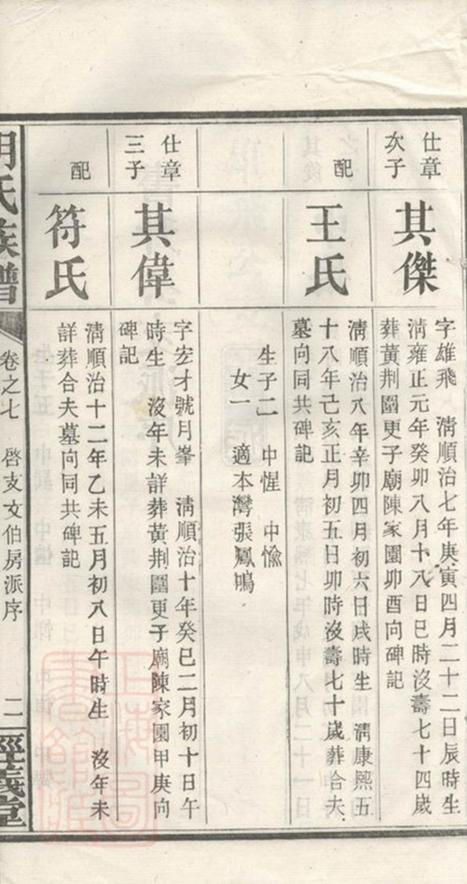 仕章次子
其傑
字雄飛 淸順治七年庚寅四月二十二日辰時生
淸雍正元年癸卯八月十八日巳時沒壽七十四歲
葬黃荆圍更子廟陳家園卯酉向碑記
配
王氏
淸順治八年辛卯四月初六日戌時生 淸康熙五
十八年己亥正月初五日卯時沒壽七十歲葬合夫
墓向同共碑記
生子二 中惺 中愉
女一 適本灣張鳳鳴
仕章三子
其偉
字宏才號月峯 淸順治十年癸巳二月初十日午
時生 沒年未詳葬黃荆圍更子廟陳家園甲庚向
碑記
配
符氏
淸順治十二年乙未五月初八日午時生 沒年未
詳葬合夫墓向同共碑記
氏族譜
卷之七 啓支文伯房派序 二
經義堂